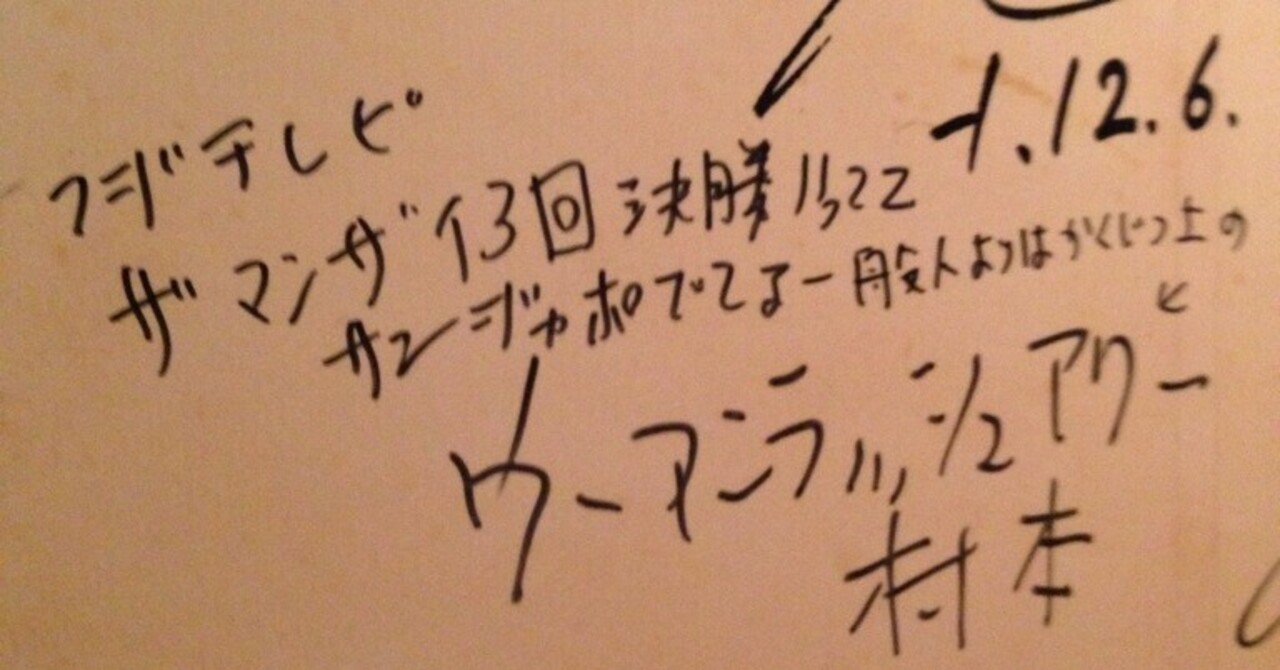 1.12.6.
フジテレビ
ザ マンザイ3回決勝いってて
サンジャポでてる一般人よりはかくじつ上の
ウーマンラッシュアワー
村本